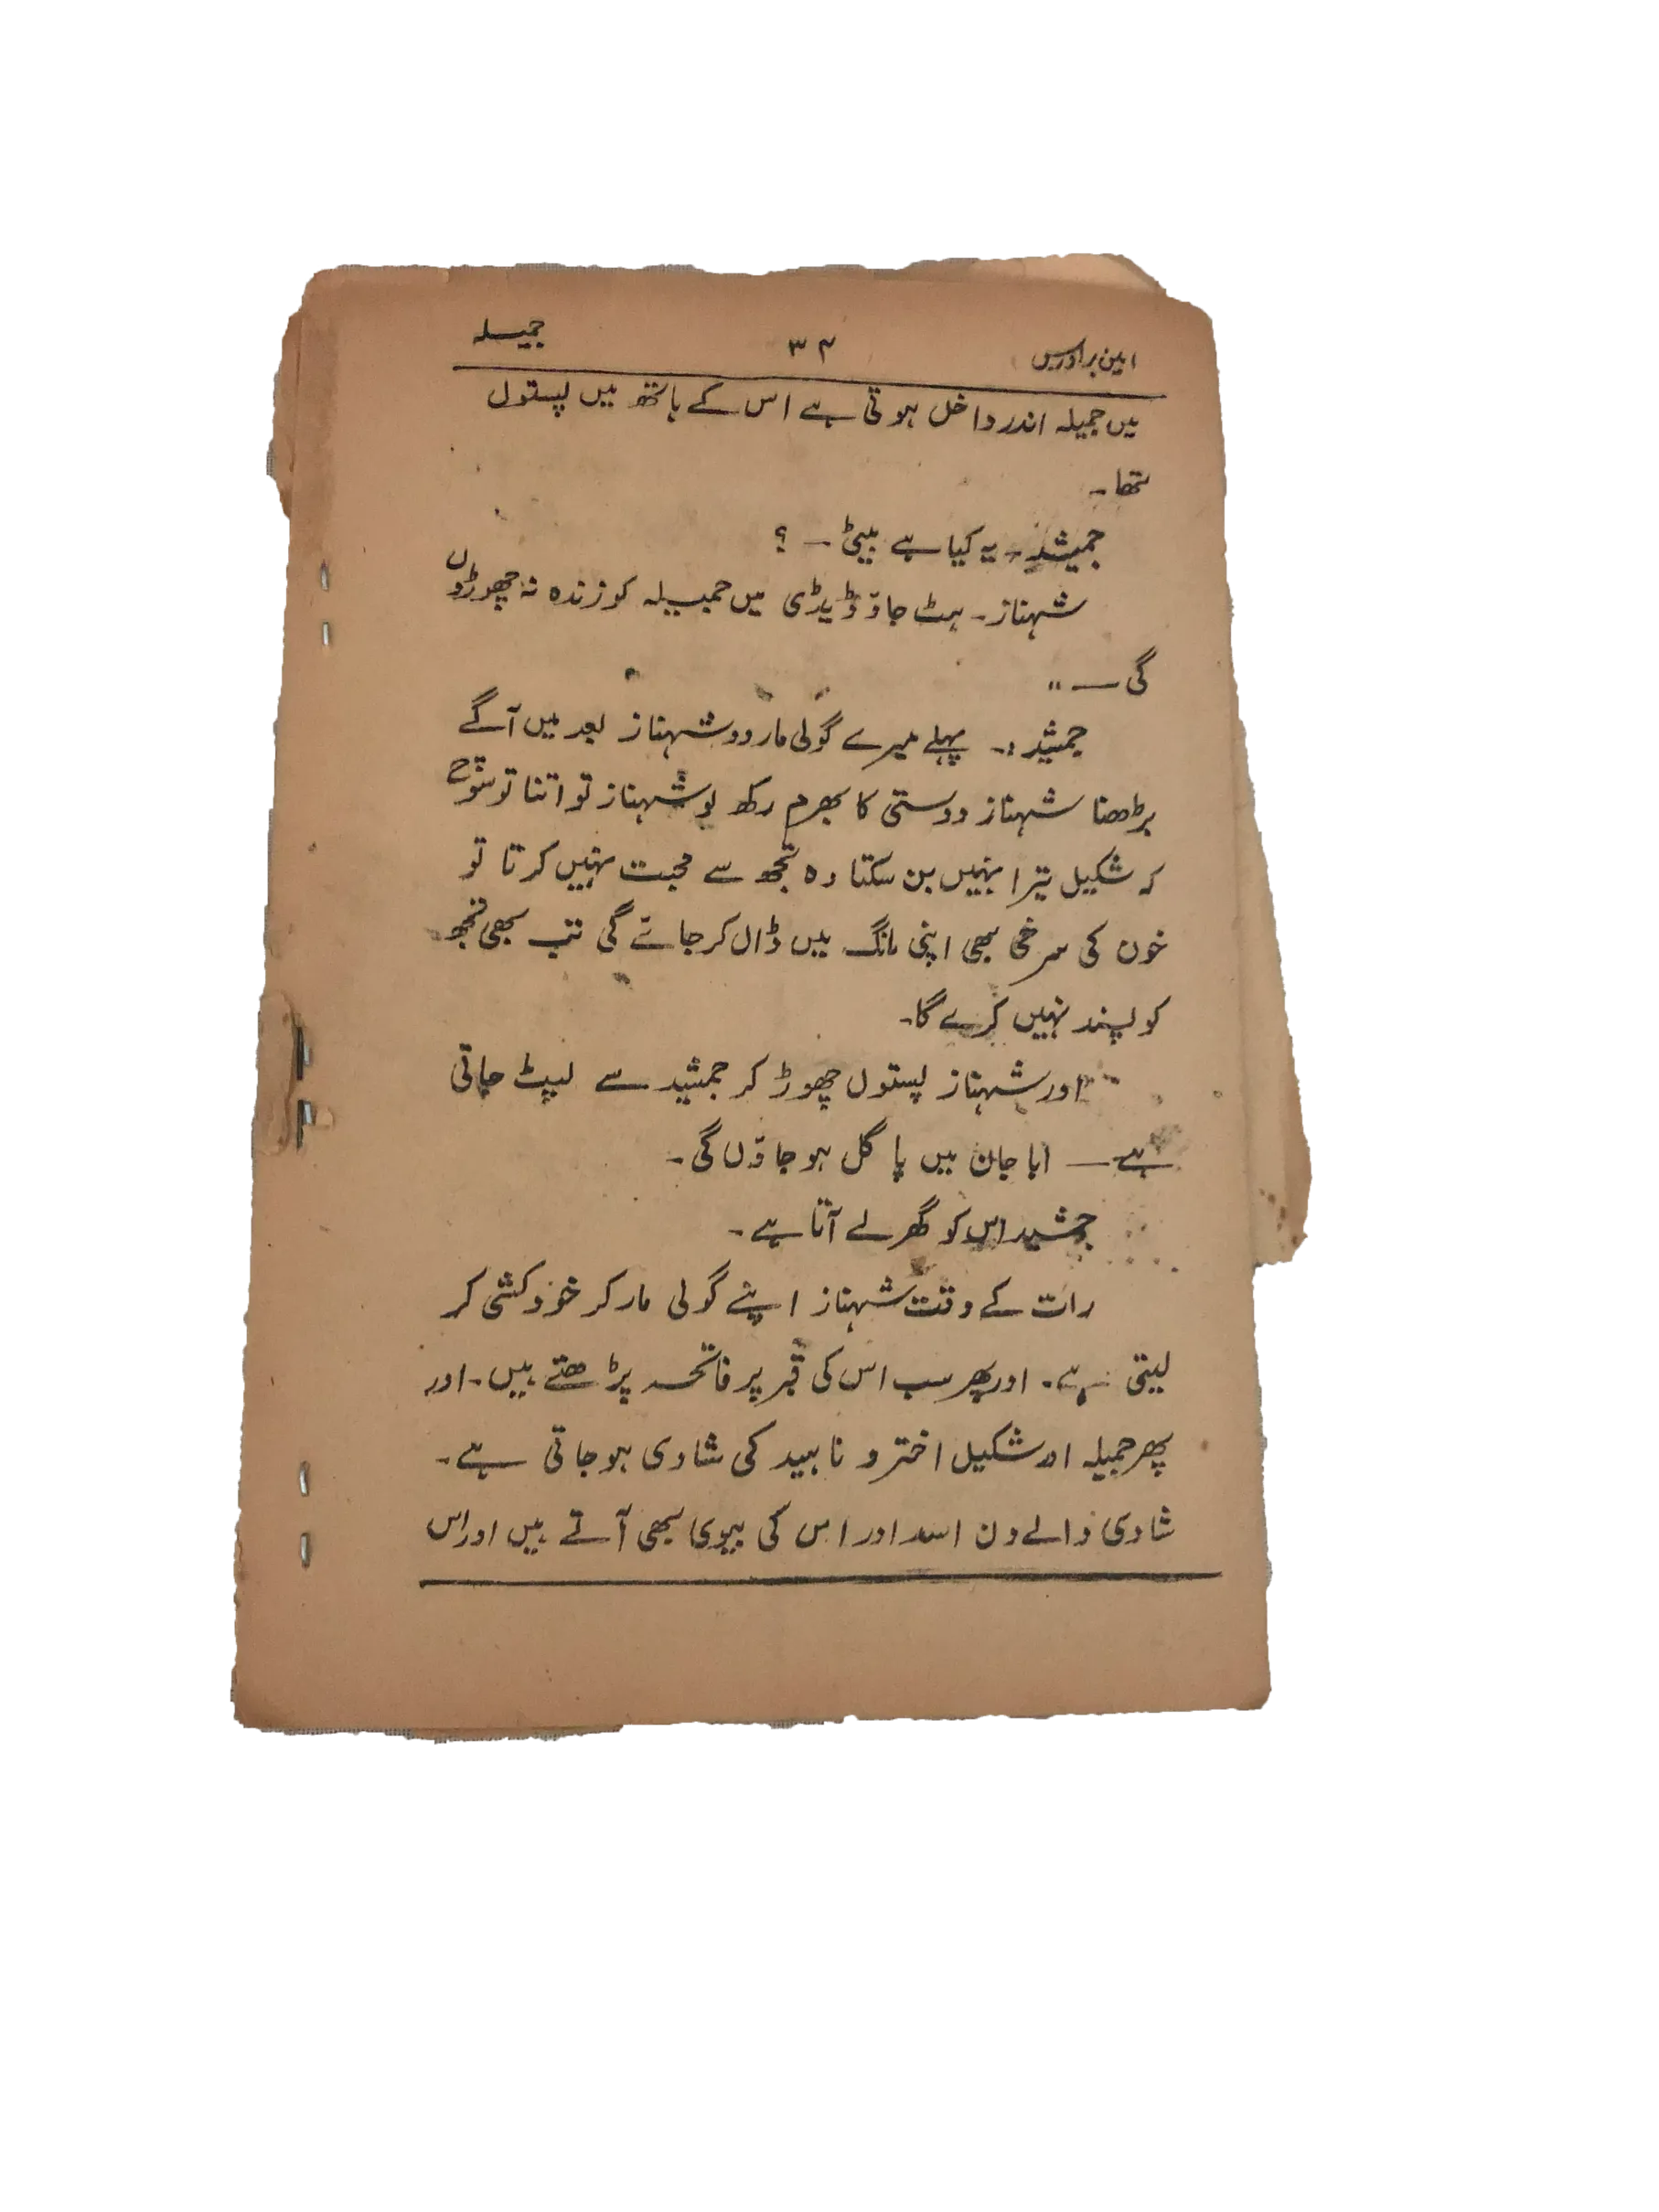 امین برادرس ۳۴ جمیلہ
میں جمیلہ اندر داخل ہوتی ہے اس کے ہاتھ میں پستول
تھا۔
جمیشد۔ یہ کیا ہے بیٹی ۔ ؟
شہناز۔ ہٹ جاؤ ڈیڈی میں جمیلہ کو زندہ نہ چھوڑوں
گی ۔۔ "
جمشید :۔ پہلے میرے گولی مار دو شہناز بعد میں آگے
بڑھنا شہناز دوستی کا بھرم رکھ لو شہناز تو اتنا تو سوچ
کہ شکیل تیرا نہیں بن سکتا وہ تجھ سے محبت نہیں کرتا تو
خون کی سرخی بھی اپنی مانگ میں ڈال کر جائے گی تب بھی تجھ
کو پسند نہیں کرے گا۔
اور شہناز پستول چھوڑ کر جمشید سے لپٹ جاتی
ہے ۔ ابا جان میں پاگل ہو جاؤں گی۔
جمشید اس کو گھر لے آتا ہے۔
رات کے وقت شہناز اپنے گولی مار کر خودکشی کر
لیتی ہے۔ اور پھر سب اس کی قبر پر فاتحہ پڑھتے ہیں۔ اور
پھر جمیلہ اور شکیل اختر و ناہید کی شادی ہو جاتی ہے۔
شادی والے دن اسد اور اس کی بیوی بھی آتے ہیں اور اس